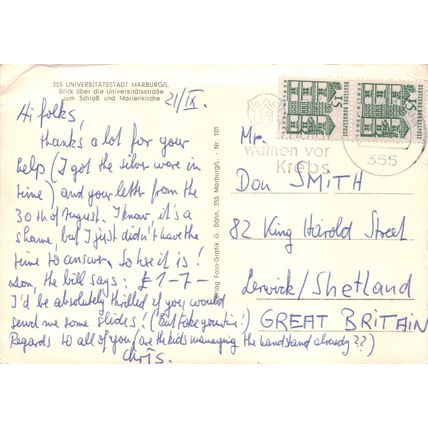 355 UNIVERSITÄTSSTADT MARBURG/L.
Blick über die Universitätsstraße
zum Schloß und Marienkirche
21/IX.
Hi folks,
thanks a lot for your
help (I got the silver were in
time) and your lett. from the
30th of August. I know, it's a
shame, but I just didn't have the
time to answer. So here it is!
Don, the bill says: £ 1-7-
I'd be absolutely thrilled if you would
send me some slides! (But take your time!)
Regards to all of you (are the kids managing the handstand already??)
Chris.
Verlag Foto-Grafik G. Dähn, 355 Marburg/L. Nr. 101
DEUTSCHE BUNDESPOST
15
DEUTSCHE BUNDESPOST
15
warnen vor
Krebs
355
Mr.
Don SMITH
82 King Harold Street
Lerwick/Shetland
GREAT BRITAIN